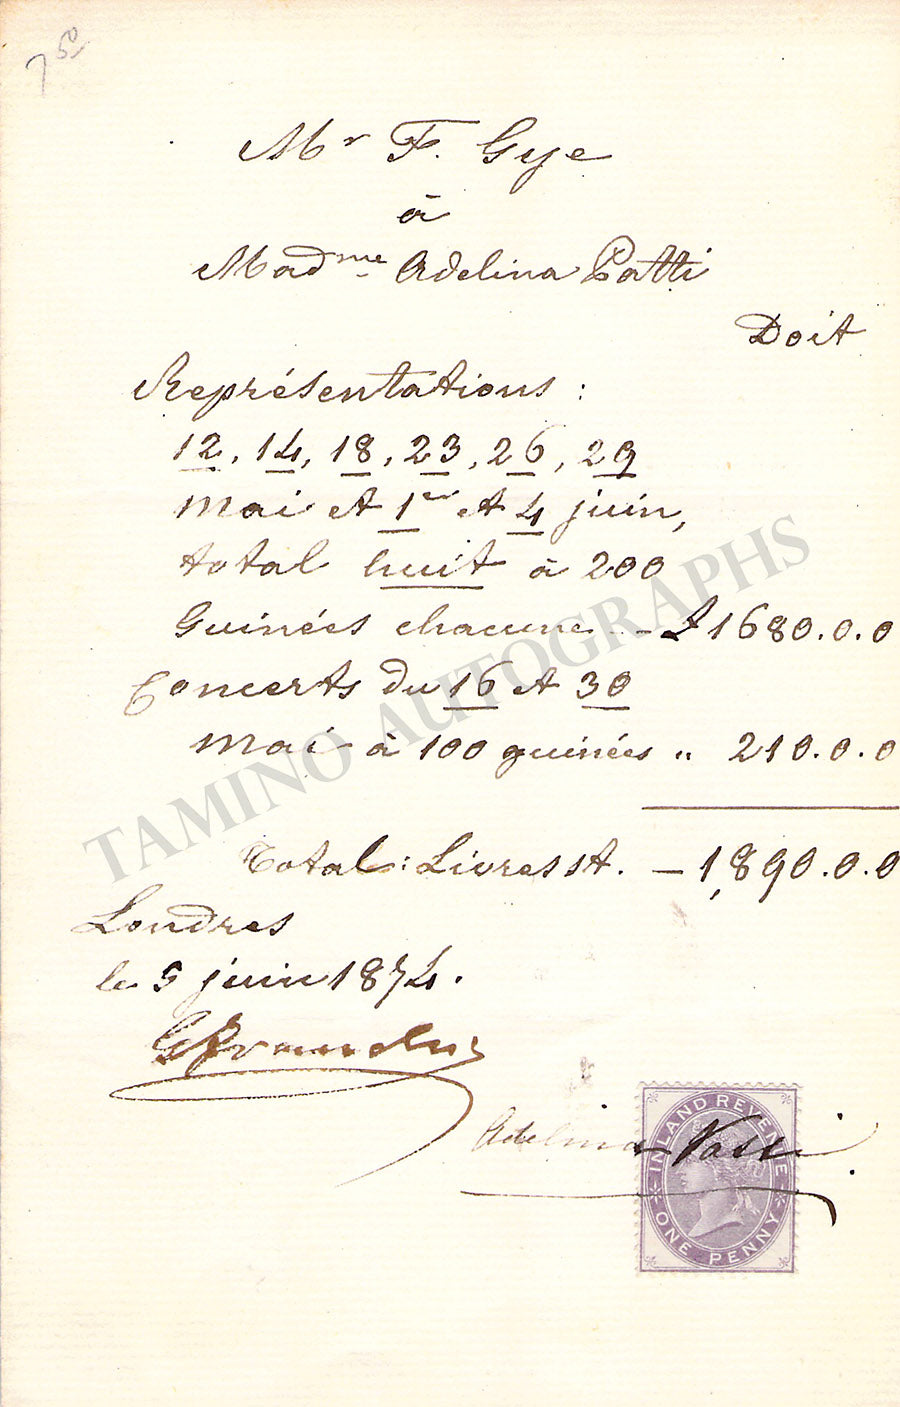 7 50
Mr F. Gye
à
Madme Adelina Patti
Doit
Représentations :
12, 14, 18, 23, 26, 29
Mai et 1er et 4 juin,
total huit à 200
Guinées chacune - £ 1680.0.0
Concerts du 16 et 30
Mai à 100 guinées " 210.0.0
Total: Livres st. - 1,890.0.0
Londres
le 5 juin 1874.
Adelina Patti
INLAND REVENUE
ONE PENNY
TAMINO AUTOGRAPHS